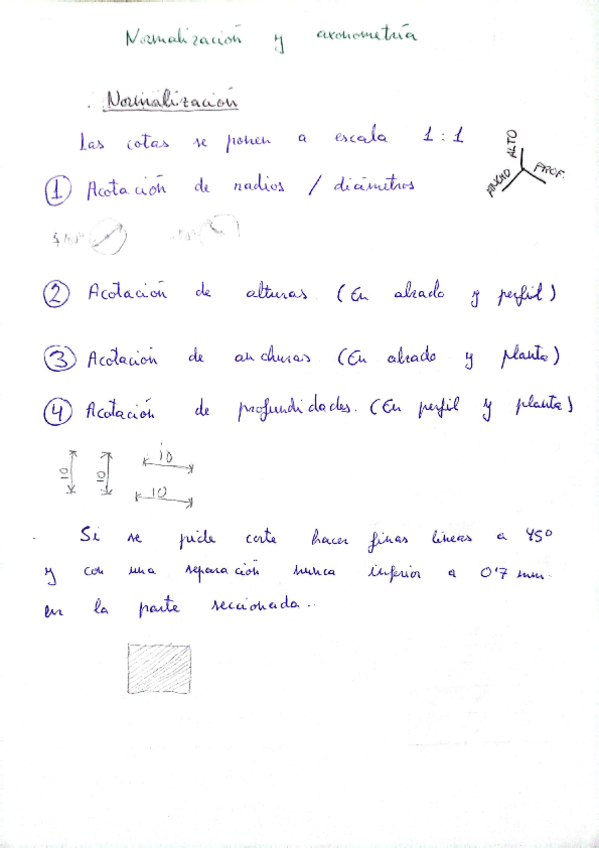 Normalización y axonometría
Normalización
Las cotas se ponen a escala 1:1
ALTO
ANCHO
PROF.
1 Acotación de radios / diámetros
2 Acotación de alturas (En alzado y perfil)
3 Acotación de anchuras (En alzado y planta)
4 Acotación de profundidades. (En perfil y planta)
10 10 10
10
Si se pide corte hacer finas lineas a 45º
y con una separación nunca inferior a 0'7 mm.
en la parte seccionada.